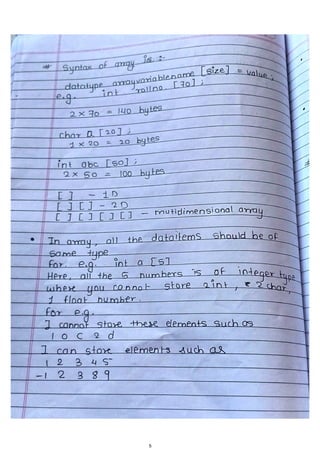 # Syntax of array is :
datatype arrayvariablename [size] = value;
e.g. int rollno [70];
2 × 70 = 140 bytes
char a [20];
1 × 20 = 20 bytes
int abc [50];
2 × 50 = 100 bytes
[ ] - 1D
[ ] [ ] - 2D
[ ] [ ] [ ] [ ] - mutidimensional array
• In array, all the dataitems should be of
same type
For. e.g. int a [5]
Here, all the 5 numbers is of integer type
where you cannot store 2 int, 2 char,
1 float number.
for e.g.
I cannot store these elements such as
1 0 C 2 d
I can store elements such as
1 2 3 4 5
-1 2 3 8 9
5